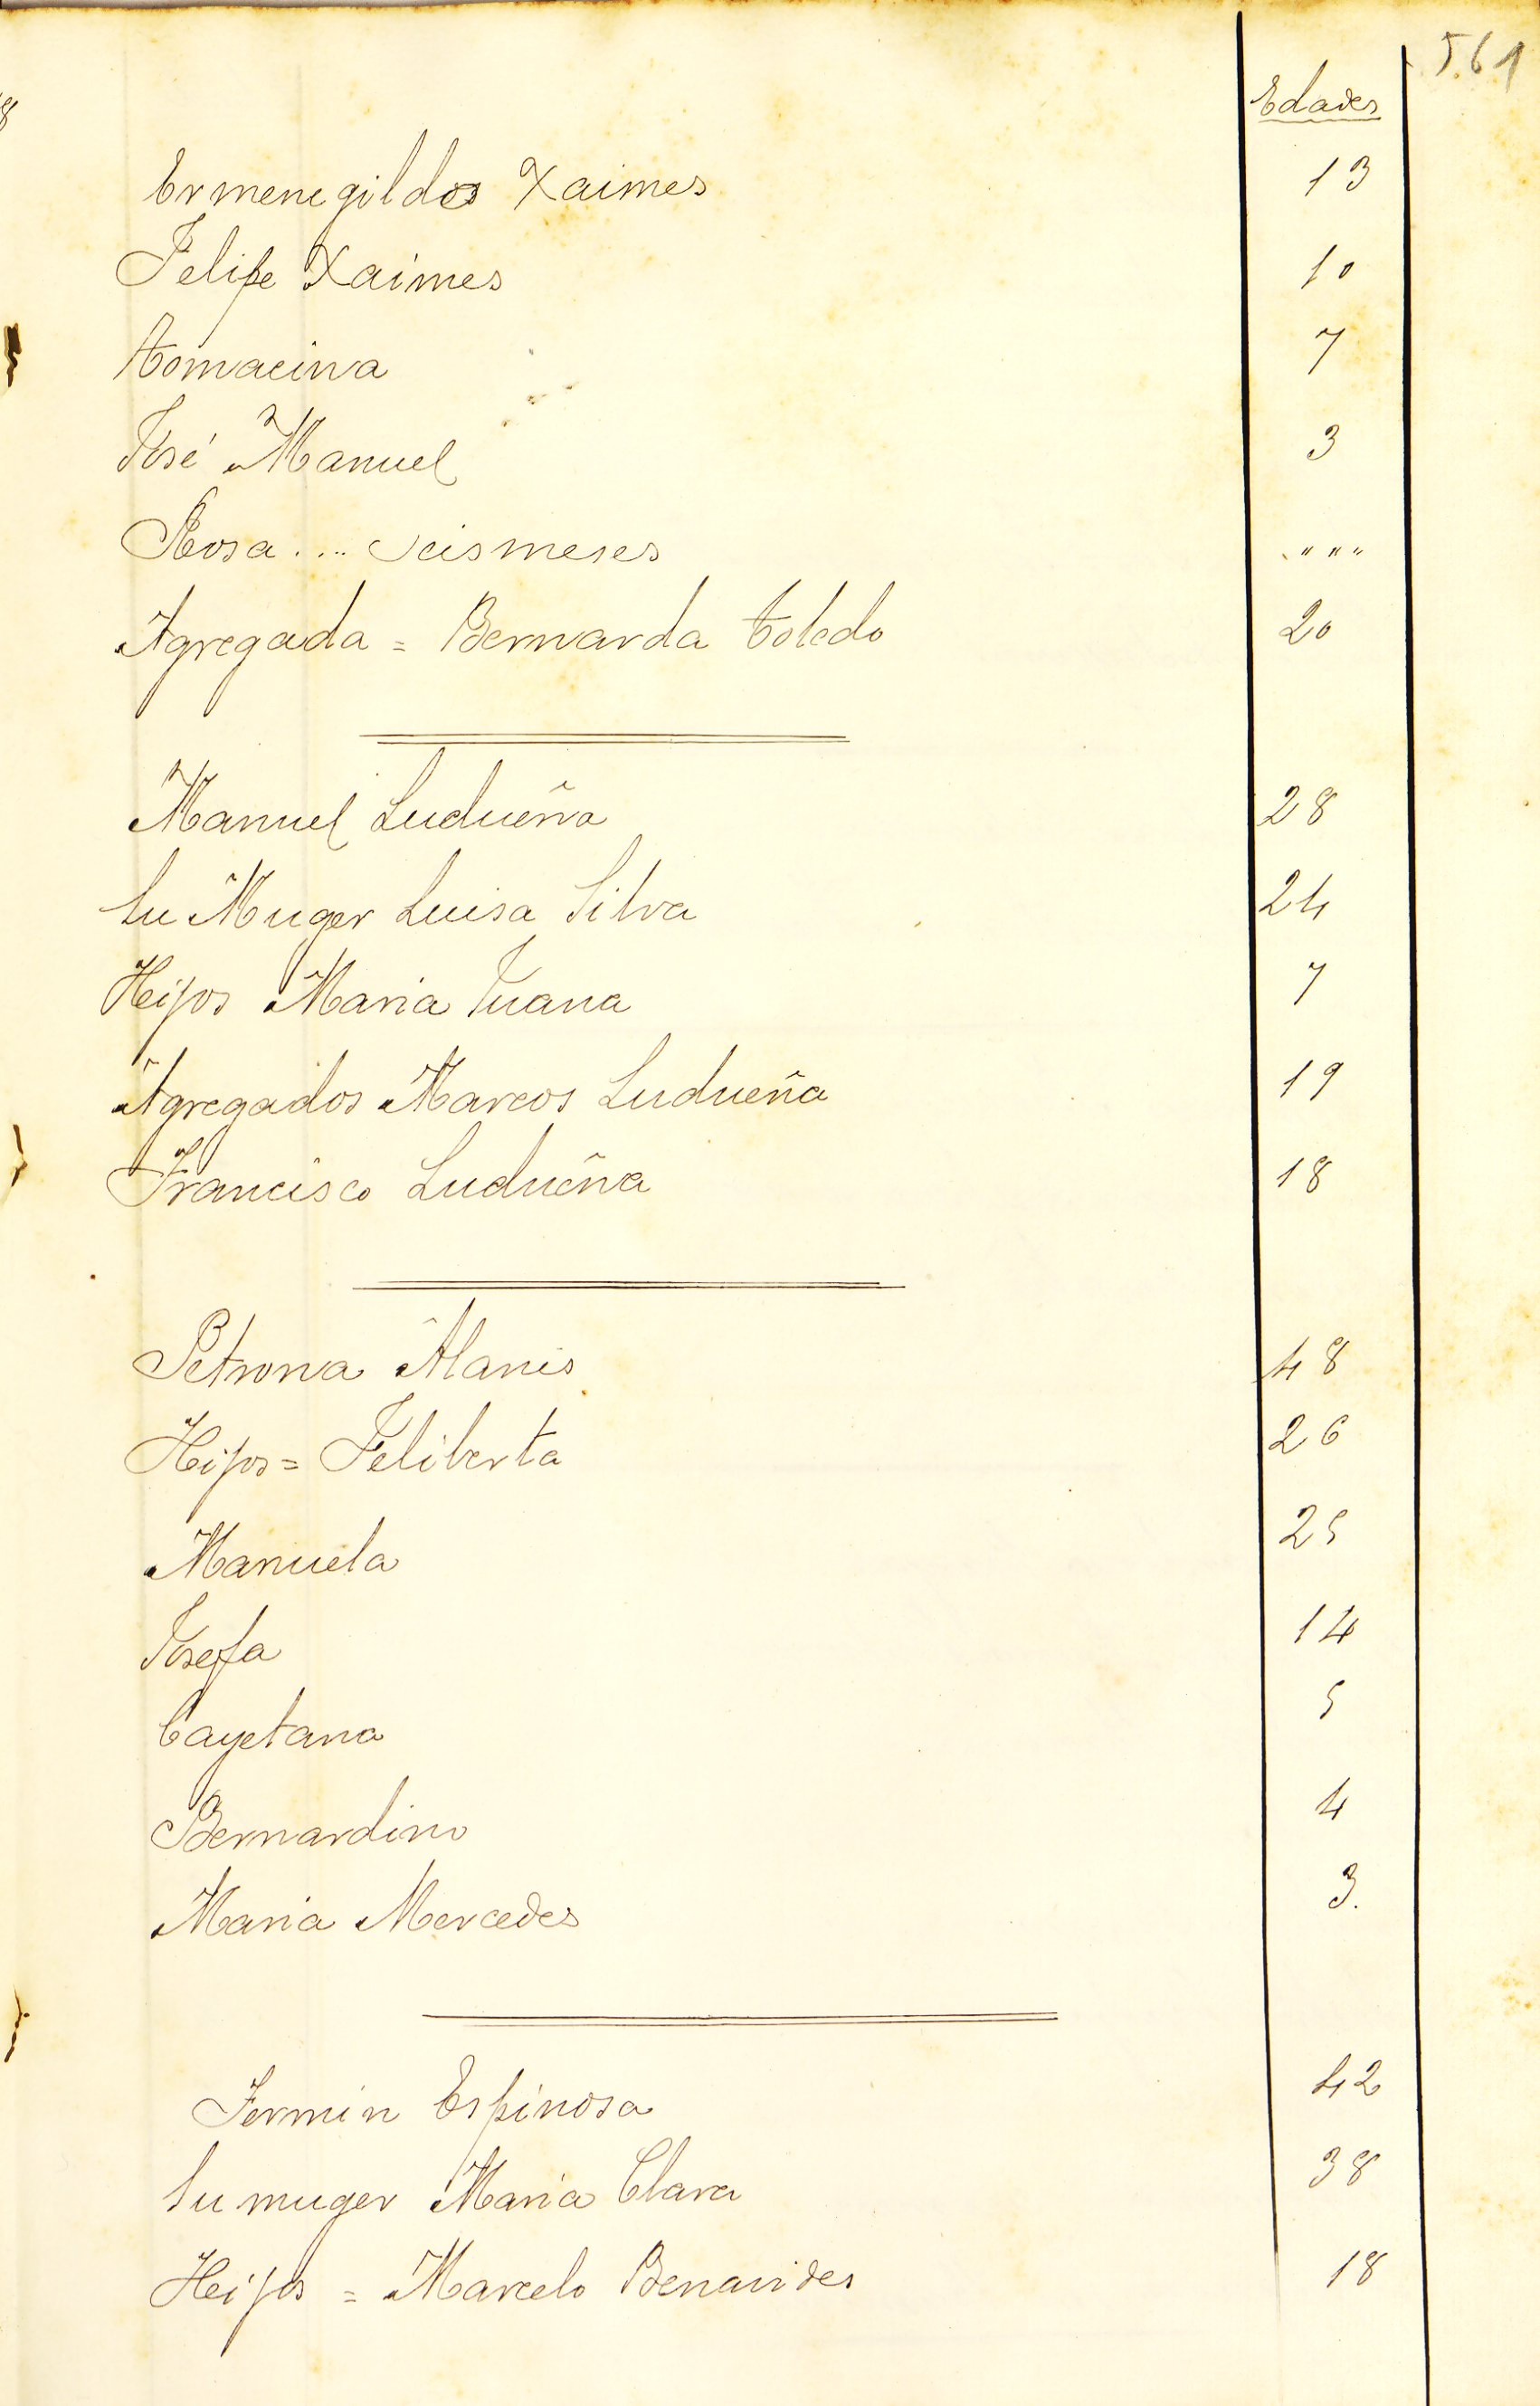 561
Edades
Ermenegildo Xaimes 13
Felipe Xaimes 10
Tomacina 7
José Manuel 3
Rosa .... seis meses " " "
Agregada = Bernarda Toledo 20
Manuel Ludueña 28
Su Muger Luisa Silva 24
Hijos Maria Juana 7
Agregados Marcos Ludueña 19
Francisco Ludueña 18
Petrona Alanis 48
Hijos = Feliberta 26
Manuela 25
Josefa 14
Cayetana 5
Bernardino 4
Maria Mercedes 3.
Fermin Espinosa 42
Su muger Maria Clara 38
Hijos = Marcelo Benavides 18